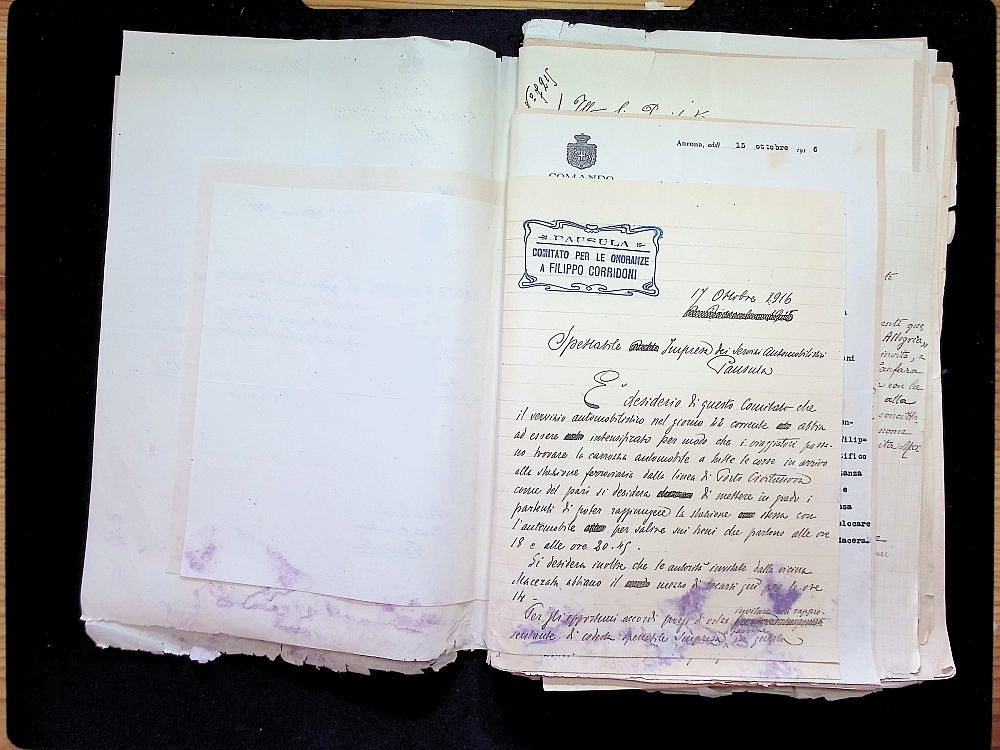 Ancona, addì 15 ottobre 1916
COMANDO
PAUSULA
COMITATO PER LE ONORANZE
A FILIPPO CORRIDONI
17 Ottobre 1916
Spettabile Impresa dei Servizi Automobilistici
Pausula
E' desiderio di questo Comitato che
il servizio automobilistico nel giorno 22 corrente abbia
ad essere intensificato per modo che i viaggiatori possa-
no trovare la carrozza automobile a tutte le corse in arrivo
alla stazione ferroviaria dalla linea di Porto Civitanova
come del pari si desidera di mettere in grado i
partenti di poter raggiungere la stazione stessa con
l'automobile per salire sui treni che partono alle ore
18 e alle ore 20.45.
Si desidera inoltre che le autorità invitate dalla vicina
Macerata abbiano il mezzo di recarsi qui per le ore
14 -
Per gli opportuni accordi prego di voler inviare un rappre-
sentante di codesta spettabile Impresa in questa
ente que
Allegria,
invito,
fanfara
con la
alla
nome
Filip=
sifico
anza
e
nza
olocare
Macera=